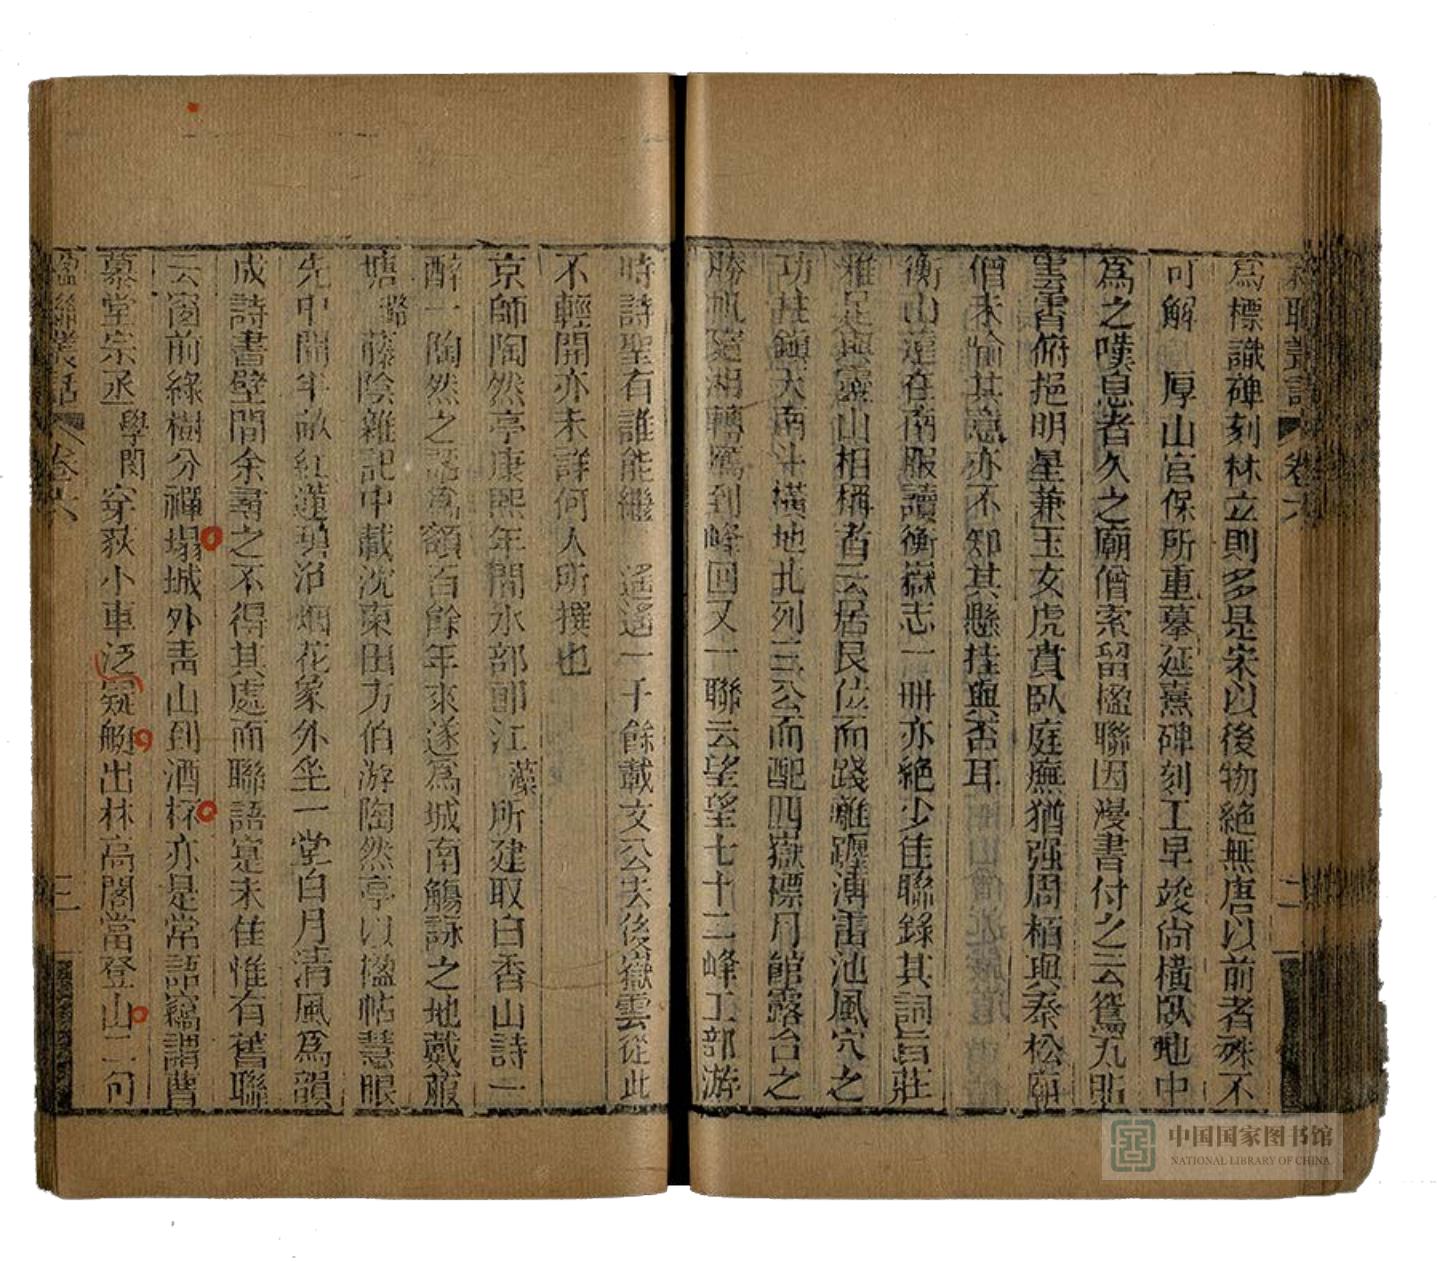 楹聯叢話 卷六 二
爲標識碑刻林立則多是宋以後物絶無唐以前者殊不
可解 厚山宮保所重摹延熹碑刻工早竣尙橫臥地中
爲之嘆息者久之廟僧索留楹聯因漫書付之云鴛瓦貼
雲霄俯挹明星兼玉女虎賁臥庭廡猶强周栢與秦松廟
僧未喻其意亦不知其懸挂與否耳
衡山遠在南服讀衡嶽志一冊亦絶少佳聯錄其詞旨莊
雅足與靈山相稱者云居艮位而踐離躔溥雷池風穴之
功柱鎮大南斗橫地北列三公而配四嶽標月館露台之
勝帆隨湘轉鴈到峰回又一聯云望望七十二峰工部游
時詩聖有誰能繼 遙遙一千餘載文公去後嶽雲從此
不輕開亦未詳何人所撰也
京師陶然亭康熙年間水部郎江 藻 所建取白香山詩一
醉一陶然之語爲額百餘年來遂爲城南觴詠之地戴菔
塘 璐 藤陰雜記中載沈東田方伯游陶然亭以楹帖慧眼
先中開半畝紅蓮碧沼烟花象外坐一堂白月清風爲韻
成詩書壁間余尋之不得其處而聯語寔未佳惟有舊聯
云窗前綠樹分禪榻城外靑山到酒杯亦是常語竊謂曹
慕堂宗丞 學閔 穿荻小車泛窺艇出林高閣當登山二句
楹聯叢話 卷六 三
中国国家图书馆
NATIONAL LIBRARY OF CHINA